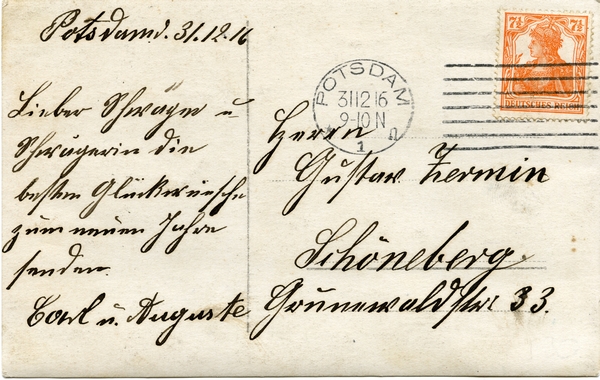 Potsdam d. 31.12.16
Lieber Schwager u
Schwägerin die
besten Glückwünsche
zum neuen Jahre
senden.
Carl u. Auguste
POTSDAM
31 12 16
9-10 N
1 n
7½ 7½
DEUTSCHES REICH
Herrn
Gustav Zermin
Schöneberg
Grunewaldstr 33.